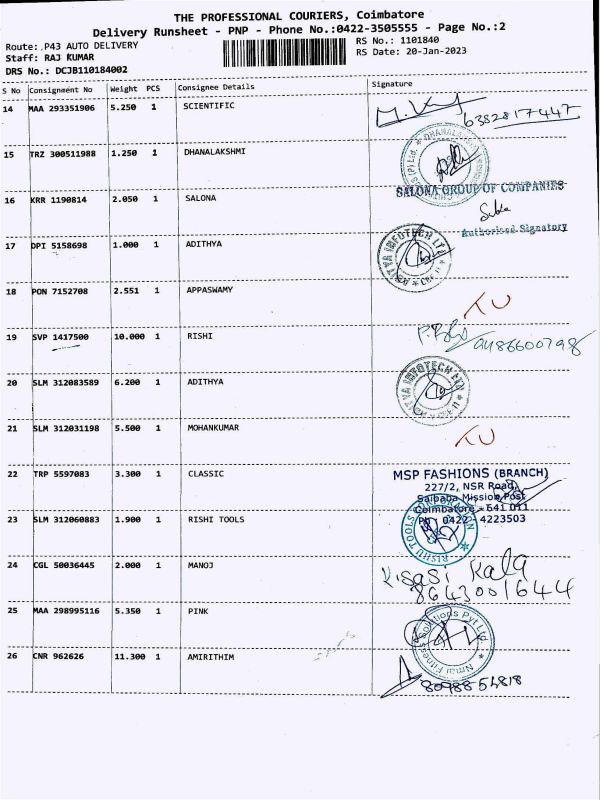 THE PROFESSIONAL COURIERS, Coimbatore
Delivery Runsheet - PNP - Phone No.:0422-3505555 - Page No.:2
Route: P43 AUTO DELIVERY
RS No.: 1101840
Staff: RAJ KUMAR
RS Date: 20-Jan-2023
DRS No.: DCJB110184002
S No Consignment No Weight PCS Consignee Details Signature
14 MAA 293351906 5.250 1 SCIENTIFIC
6382817447
15 TRZ 300511988 1.250 1 DHANALAKSHMI
16 KRR 1190814 2.050 1 SALONA
SALONA GROUP OF COMPANIES
Authorised Signatory
17 DPI 5158698 1.000 1 ADITHYA
ADITYA INFOTECH LTD
18 PON 7152708 2.551 1 APPASWAMY
19 SVP 1417500 10.000 1 RISHI
9486600798
20 SLM 312083589 6.200 1 ADITHYA
ADITYA INFOTECH LTD
21 SLM 312031198 5.500 1 MOHANKUMAR
22 TRP 5597083 3.300 1 CLASSIC
MSP FASHIONS (BRANCH)
227/2, NSR Road,
Saibaba Mission Post
Coimbatore - 641 011
Ph : 0422 - 4223503
23 SLM 312060883 1.900 1 RISHI TOOLS
RISHI TOOLS CORPORATION
24 CGL 50036445 2.000 1 MANOJ
Kala
8643001644
25 MAA 298995116 5.350 1 PINK
Fitness Solutions Pvt Ltd.
26 CNR 962626 11.300 1 AMIRITHIM